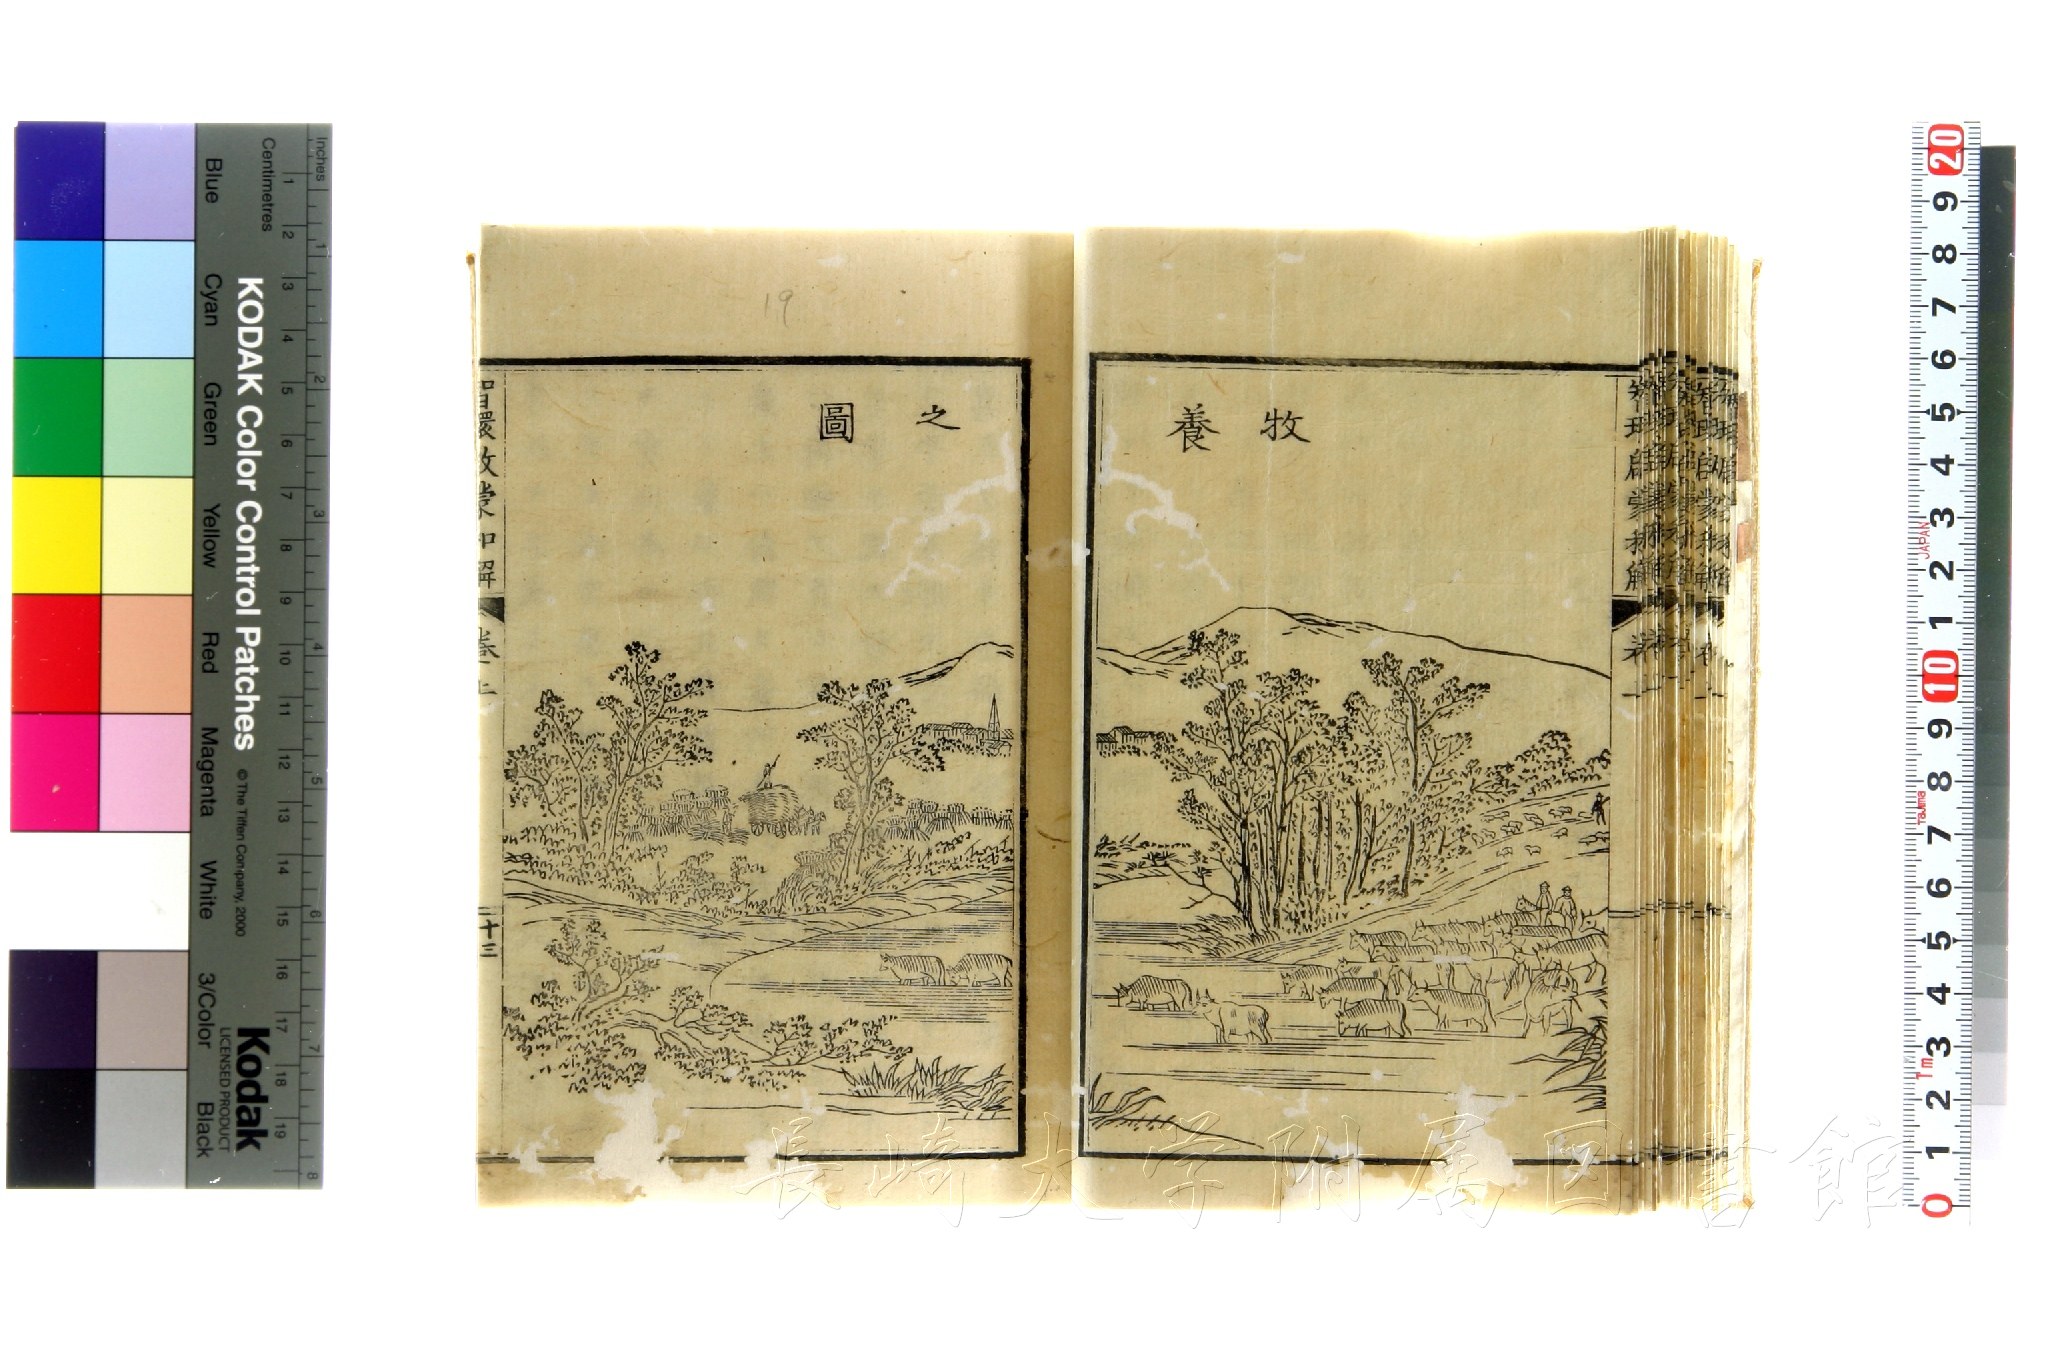 牧養
之圖
智環啟蒙和解
卷上
十三
19
長崎大学附属図書館
Inches
Centimetres
KODAK Color Control Patches
© The Tiffen Company, 2000
Kodak
LICENSED PRODUCT
Blue
Cyan
Green
Yellow
Red
Magenta
White
3/Color
Black
1 2 3 4 5 6 7 8 9 10 11 12 13 14 15 16 17 18 19
1 2 3 4 5 6 7 8
20 9 8 7 6 5 4 3 2 1 10 9 8 7 6 5 4 3 2 1 0
JAPAN
Tajima